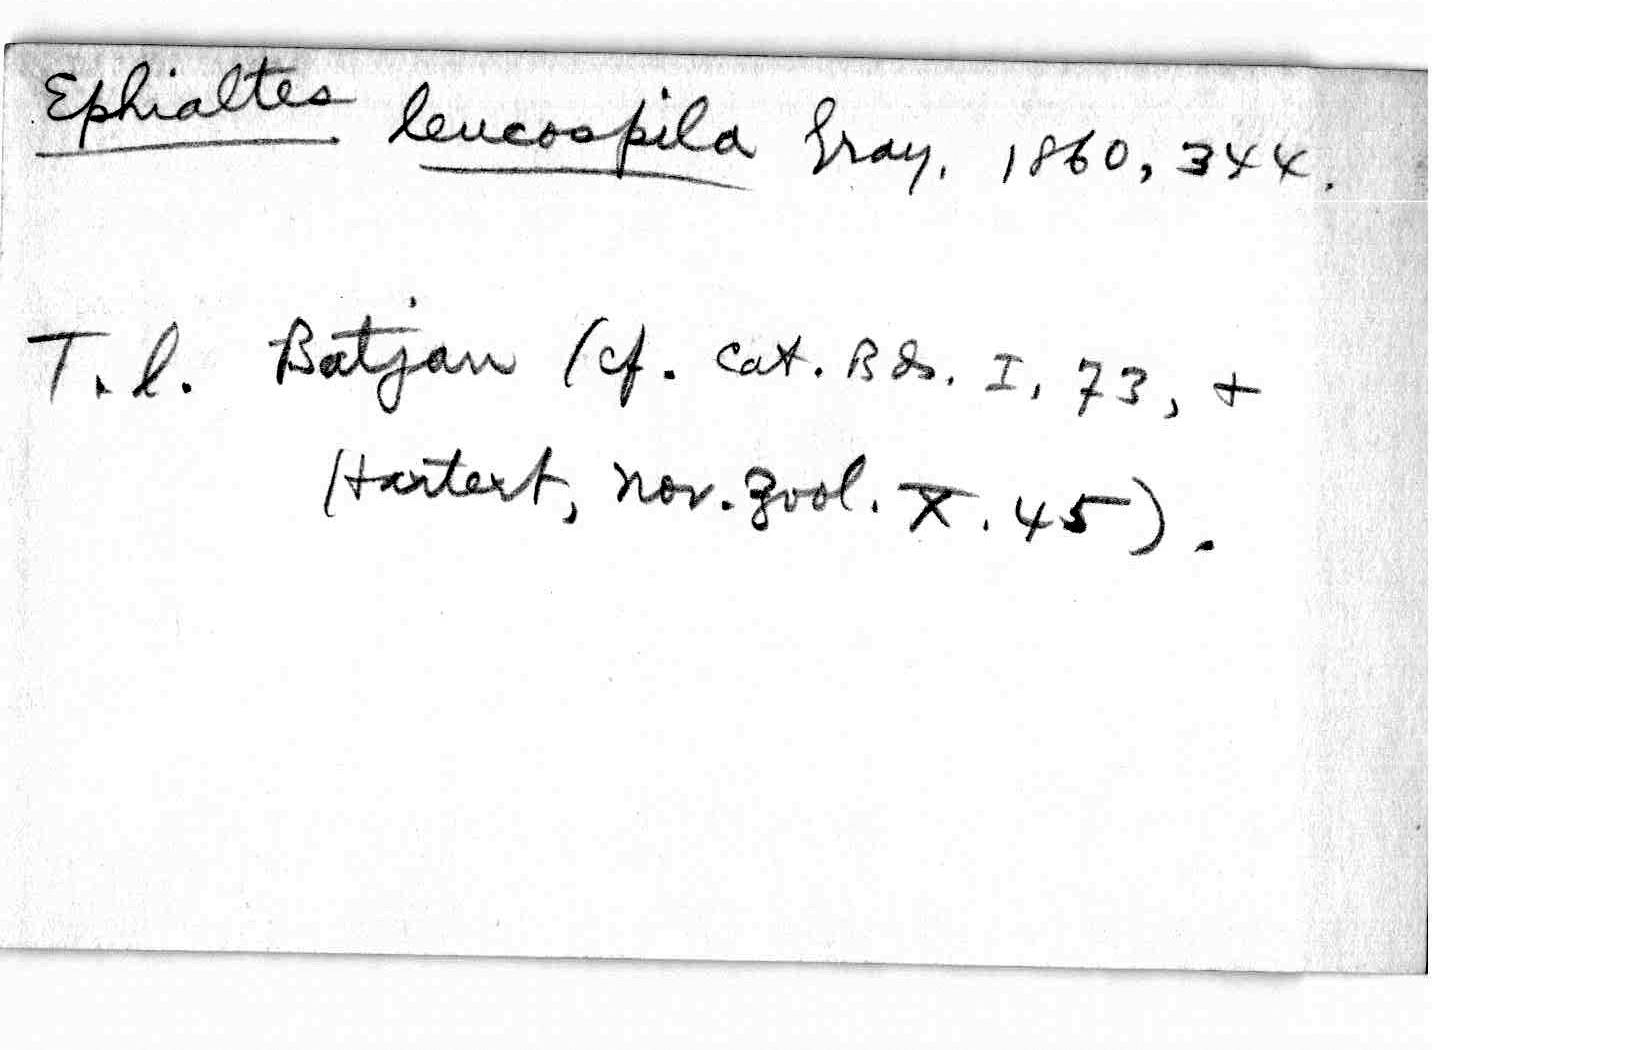 Ephialtes leucospila Gray, 1860, 344.
T. l. Batjan (cf. Cat. Bds. I, 73, +
Hartert, Nov. Zool. X. 45).